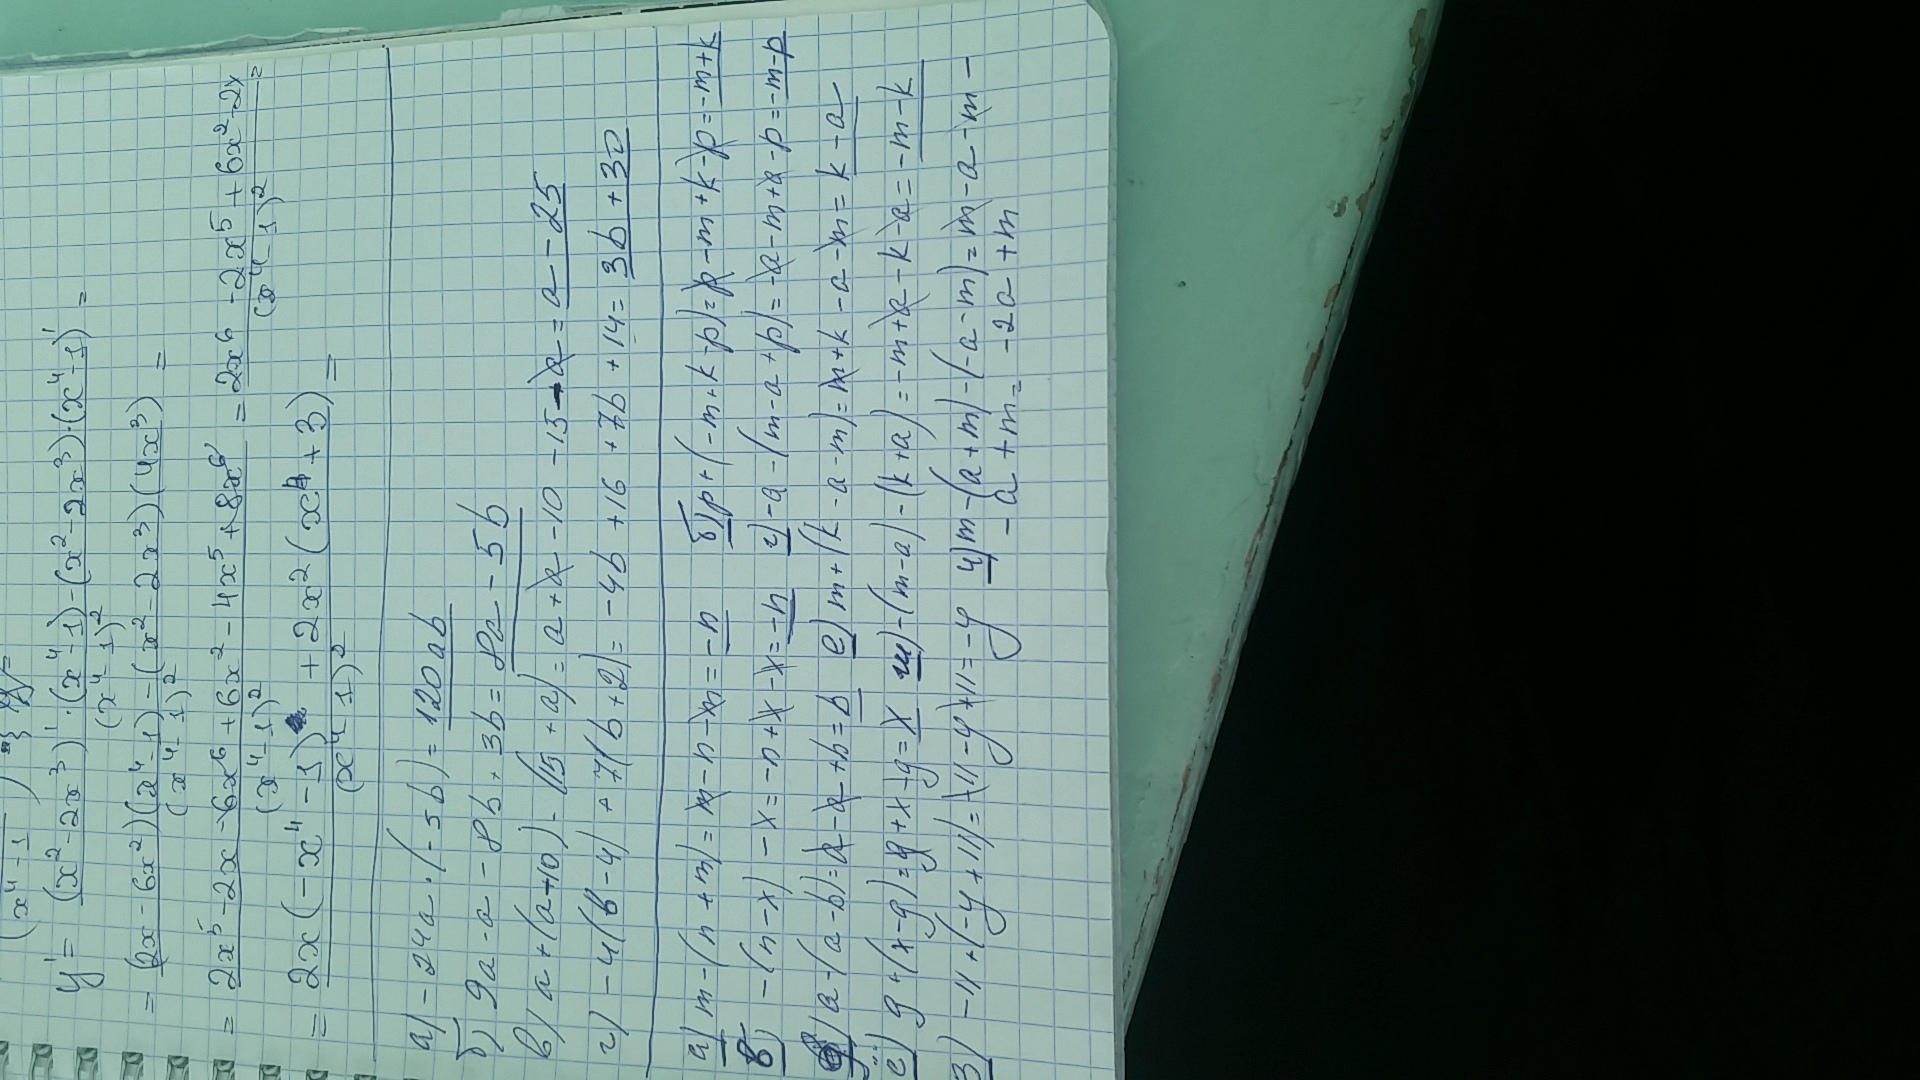 (x⁴-1
y' = (x² - 2x³)' · (x⁴-1) - (x² - 2x³) · (x⁴-1)' =
(x⁴-1)²
= (2x - 6x²)(x⁴-1) - (x² - 2x³)(4x³) =
(x⁴-1)²
= 2x⁵ - 2x - 6x⁶ + 6x² - 4x⁵ + 8x⁶ = 2x⁶ - 2x⁵ + 6x² - 2x =
(x⁴-1)² (x⁴-1)²
= 2x(-x⁴-1) + 2x²(x⁴+3) =
(x⁴-1)²
а) -24a·(-5b) = 120ab
б) 9a - a - 8b + 3b = 8a - 5b
в) a + (a+10) - (15 + a) = a + a - 10 - 15 - a = a - 25
г) -4(b-4) + 7(b+2) = -4b + 16 + 7b + 14 = 3b + 30
а) m - (n + m) = m - n - m = -n б) p + (-m + k - p) = p - m + k - p = -m + k
в) -(n - x) - x = -n + x - x = -n г) -a - (m - a + p) = -a - m + a - p = -m - p
a - (a - b) = a - a + b = b е) m + (k - a - m) = m + k - a - m = k - a
ё) y + (x - y) = y + x - y = x ж) -(m - a) - (k + a) = -m + a - k - a = -m - k
з) -11 + (-y + 11) = -11 - y + 11 = -y и) m - (a + m) - (-a - m) = m - a - m -
- a + m = -2a + m